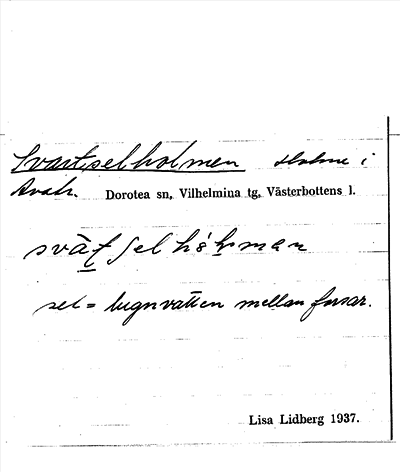 Svartselholmen holme i
Avatr. Dorotea sn, Vilhelmina tg, Västerbottens l.
sel = lugnvatten mellan forsar.
Lisa Lidberg 1937.